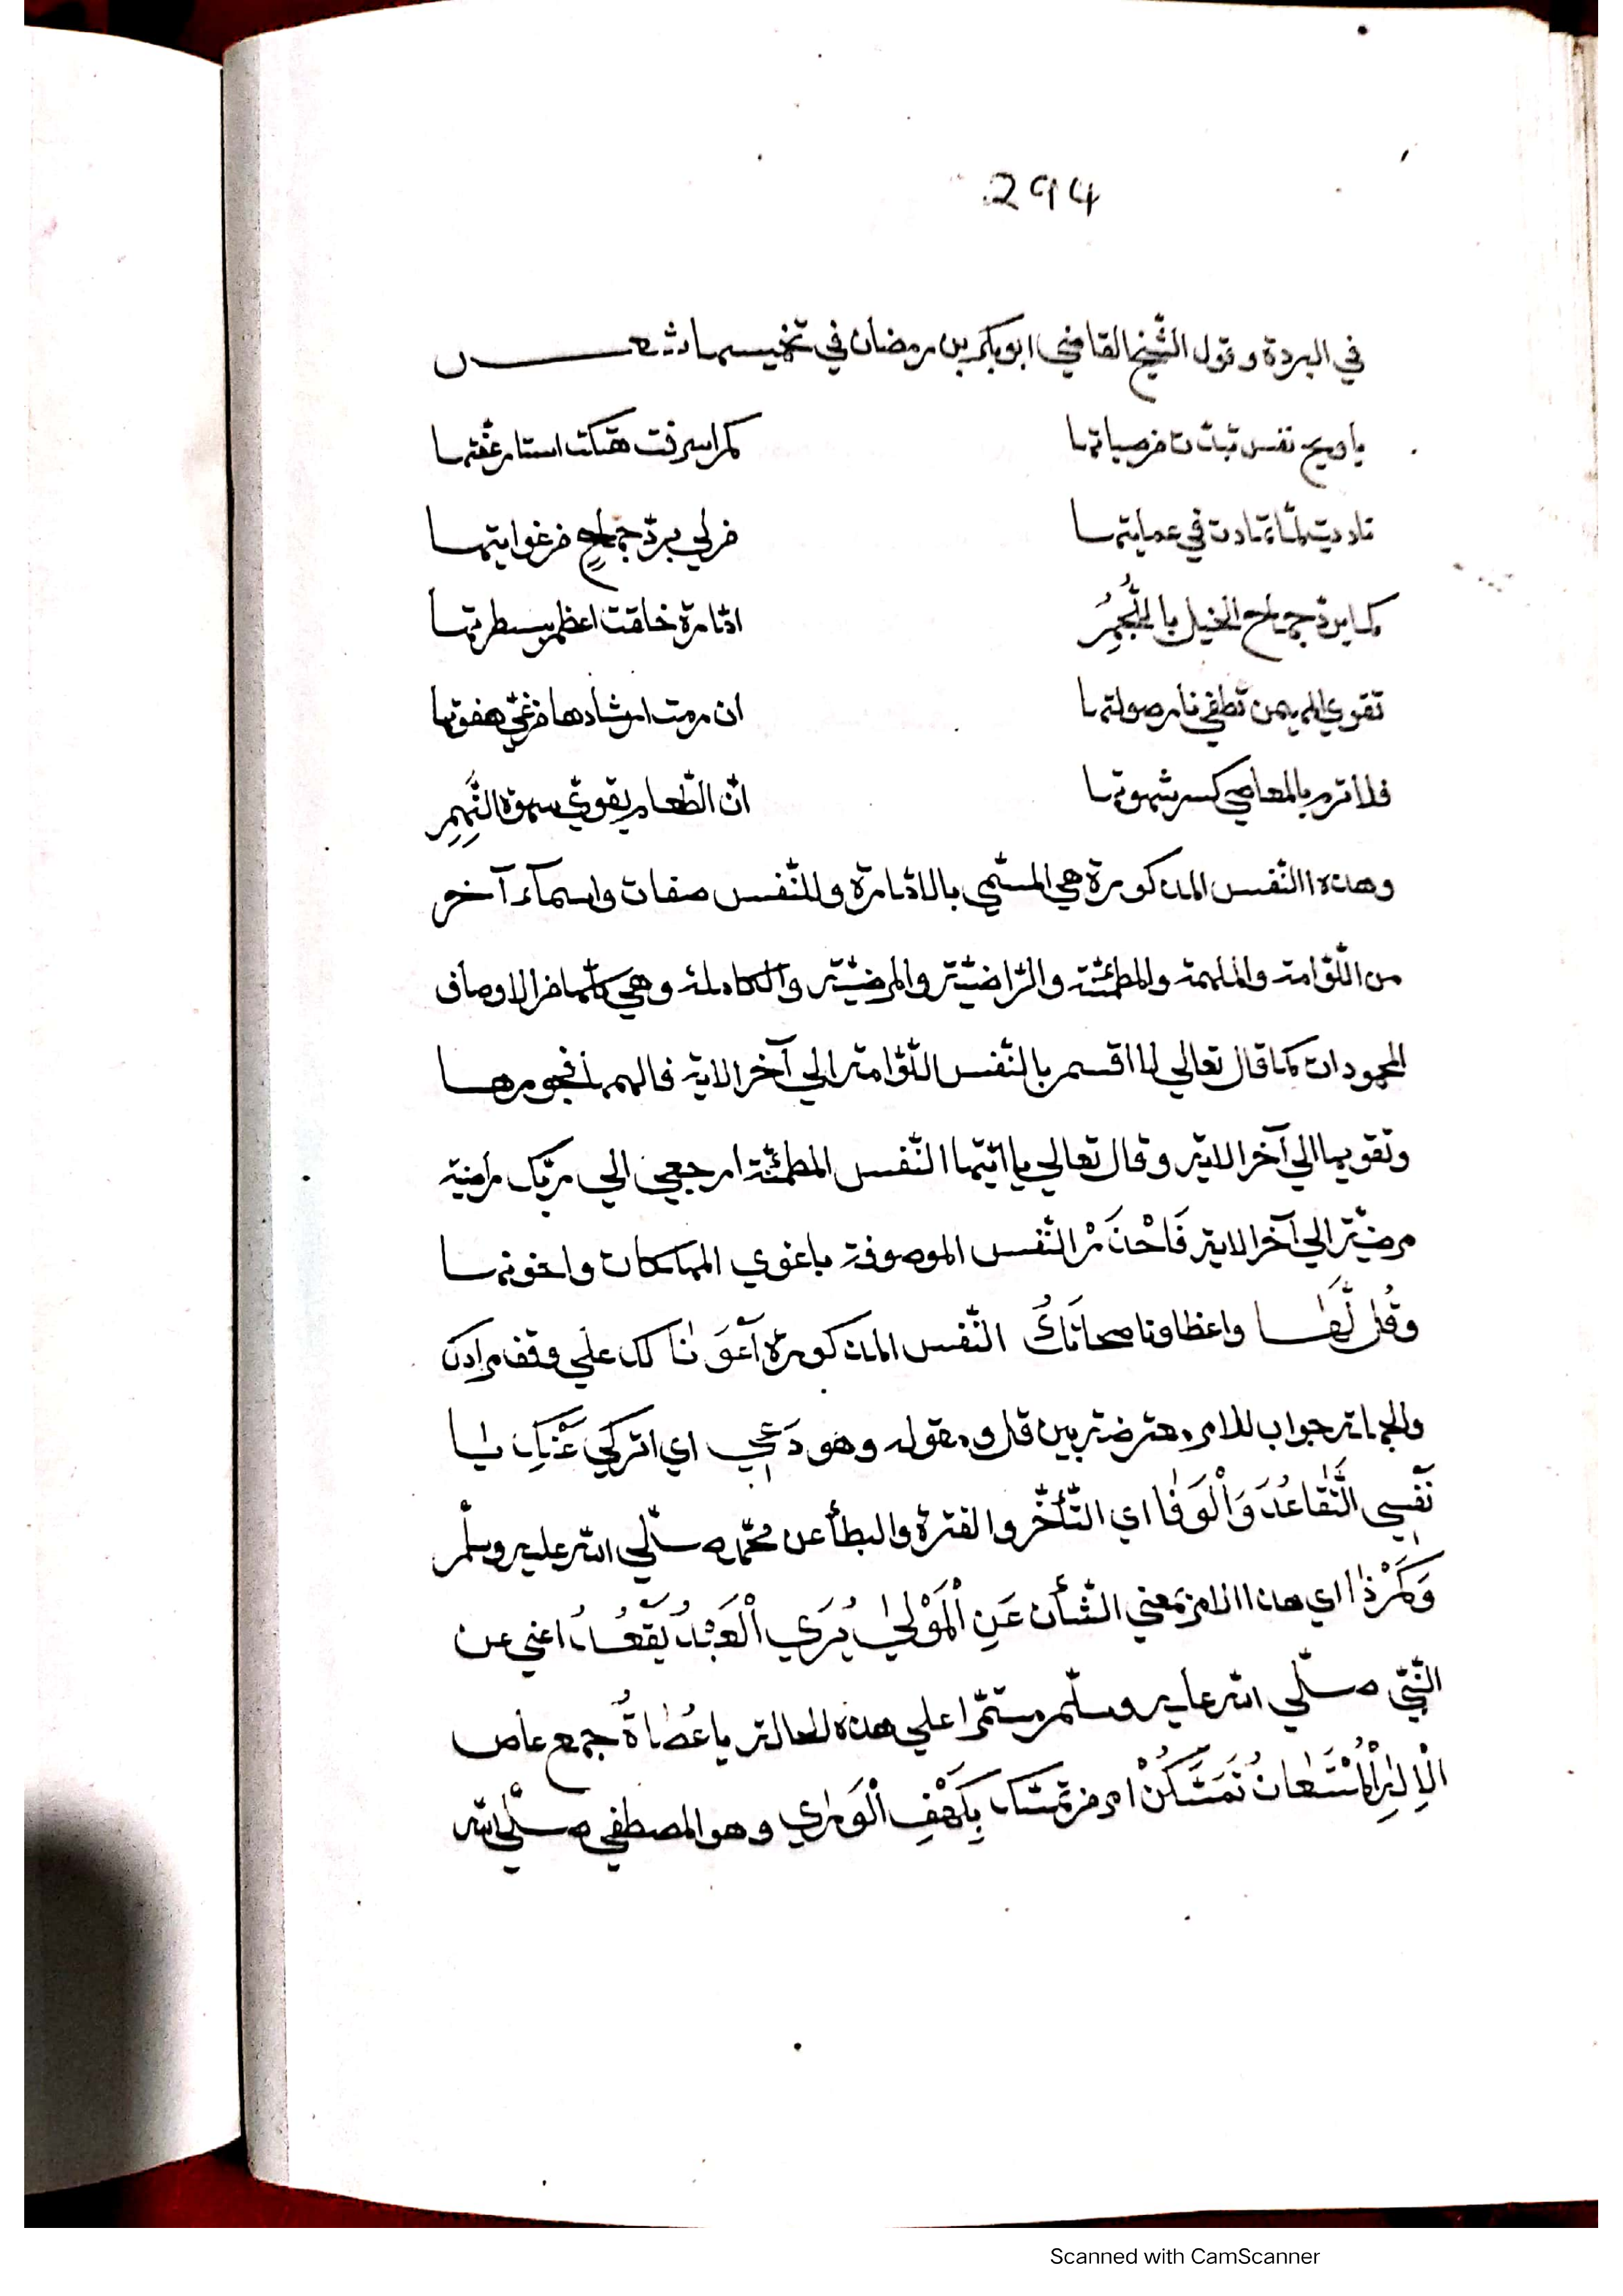 294
في البردة وقول الشّيخ القاضي ابو بكر بن رمضان في تخميسها شعر
يا ويح نفس تبدّت من صباتها كم اسرفت هتكت استار عفّتها
ناديت لمّا تمادت في عمايتها من لي بردّ جماح من غوايتها
كما يردّ جماح الخيل باللُّجُمِ امّارة خلقت اعظم بسطرتها
تقوي المهيمن تطفي نار صولتها ان رمت ارشادها من غيّ هفوتها
فلا ترم بالمعاصي كسر شهوتها انّ الطّعام يقوّي شهوة النَّهِمِ
وهذه النّفس المذكورة هي المسمّي بالامّارة وللنّفس صفات واسمآء آخر
من اللّوّامة والملهمة والمطمئنّة والرّاضيّة والمرضيّة والكاملة وهي كلّها من الاوصاف
المحمودات كما قال تعالي لا اقسم بالنّفس اللّوّامة الي آخر الاية فالهمها فجورها
وتقويها الي آخر الاية وقال تعالي يا ايّتها النّفس المطمئنّة ارجعي الي ربّك راضية
مرضيّة الي آخر الاية فَاحْذَرْ النّفس الموصوفة باغوي المهلكات واخونها
وقُل لَّهَا واعظا وناصحا تَكُ النّفس المذكورة أَعْوَنَا لك علي وقف مرادك
والجملة جواب للامر معترضة بين قل ومقوله وهو دَعِي اي اتركي عَنْكِ يا
نَفْسِي التَّقَاعُدَ وَالْوَفَا اي التّأخّر والفترة والبطأ عن محمّد صلّي الله عليه وسلّم
وَكَمْ ذَا اي هذا الامر بمعني الشّأن عَنِ الْمَوْلَي يُرَي الْعَبْدُ يَقْعُدُ اعني عن
النّبيّ صلّي الله عليه وسلّم مستمرّا علي هذه الحالة يا عُصَاةُ جمع عاص
الْإِلَهِ الْمُسْتَعَانُ تَمَسَّكُنْ امر من تمسّك بِكَهْفِ الْوَرَي وهو المصطفي صلّي الله
Scanned with CamScanner